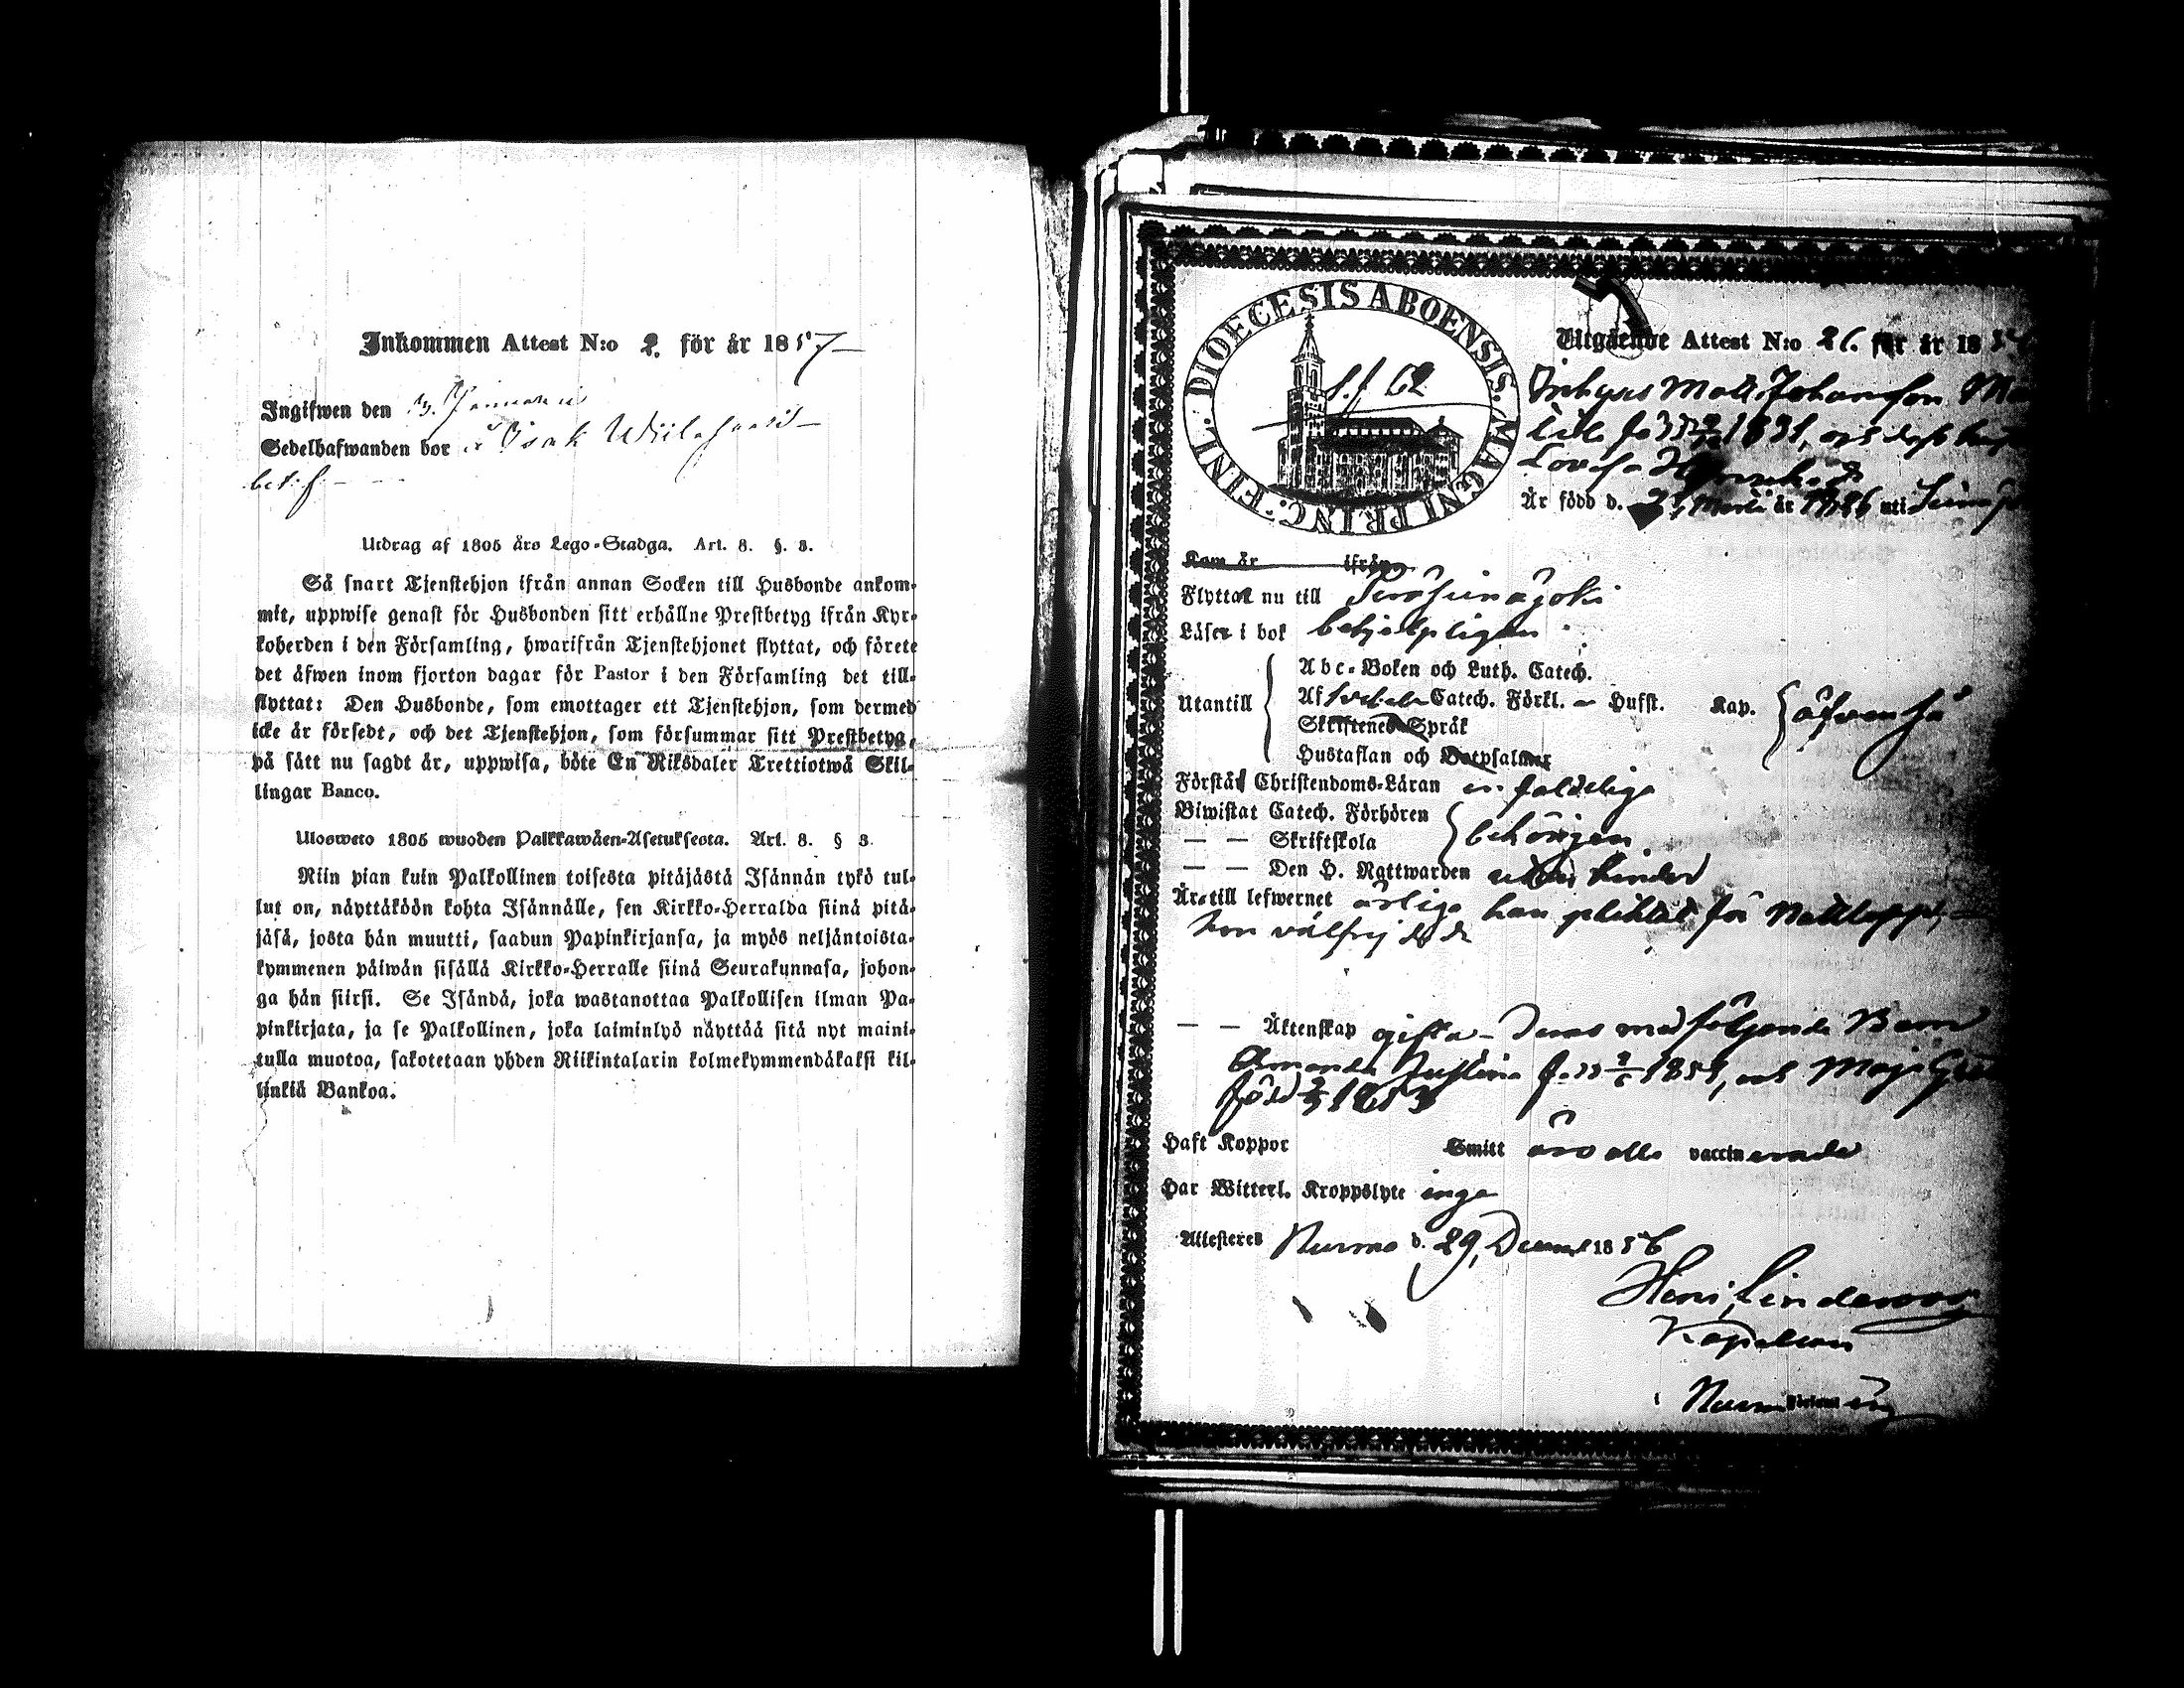 Inkommen Attest N:o 2. för år 1857
Ingifwen den 3. Januarii
Sedelhafwanden bor Isak
Utdrag af 1805 års Lego-Stadga. Art. 8. §. 3.
Så snart Tjenstehjon ifrån annan Socken till Husbonde ankom-
mit, uppwise genast för Husbonden sitt erhållne Prestbetyg ifrån Kyr-
koherden i den Församling, hwarifrån Tjenstehjonet flyttat, och förete
det äfwen inom fjorton dagar för Pastor i den Församling det till-
flyttat: Den Husbonde, som emottager ett Tjenstehjon, som dermed
icke är försedt, och det Tjenstehjon, som försummar sitt Prestbetyg,
på sätt nu sagdt är, uppwisa, böte En Riksdaler Trettiotwå Skil-
lingar Banco.
Ulosweto 1805 wuoden Palkkawäen-Asetuksesta. Art. 8. § 3.
Niin pian kuin Palkollinen toisesta pitäjästä Isännän tykö tul-
lut on, näyttäköön kohta Isännälle, sen Kirkko-Herralda siinä pitä-
jäsä, josta hän muutti, saadun Papinkirjansa, ja myös neljäntoista-
kymmenen päiwän sisällä Kirkko-Herralle siinä Seurakunnasa, johon-
ga hän siirsi. Se Isändä, joka wastanottaa Palkollisen ilman Pa-
pinkirjata, ja se Palkollinen, joka laiminlyö näyttää sitä nyt maini-
tulla muotoa, sakotetaan yhden Riikintalarin kolmekymmendäkaksi kil-
linkiä Bankoa.
DIOECESIS ABOENSIS. MAGNI PRINC: FINL.
S. f 62
Utgående Attest N:o 26. för år 18
Inhyses Matts Johansson
född 1831, och dess hustru
Lovisa
Är född d. Martii år 1826 uti
Kom år ifrån
Flyttat nu till Peräseinäjoki
Läser i bok behjelpligen
Utantill
Abc-Boken och Luth. Catech.
Af Svebelii Catech. Förkl. – Hufst. Kap. äfvenså
Skriftenes Språk
Hustaflan och Botpsalmer
Förstår Christendoms-Läran enfaldeliga
Biwistat Catech. Förhören
— — Skriftskola behörigen
— — Den H. Nattwarden utan hinder
Är till lefwernet ärliga han pliktat för Nattlopp,
hon välfrejdade
— — Äktenskap gifta – Deras medföljande Barn
Amanda Justina född 1851, och Maja
född 1853
Haft Koppor Smitt äro alla vaccinerade
Har Witterl. Kroppslyte inga
Attesteres Nurmo d. 29, Decemb 1856
Kapellan
i Nurmo